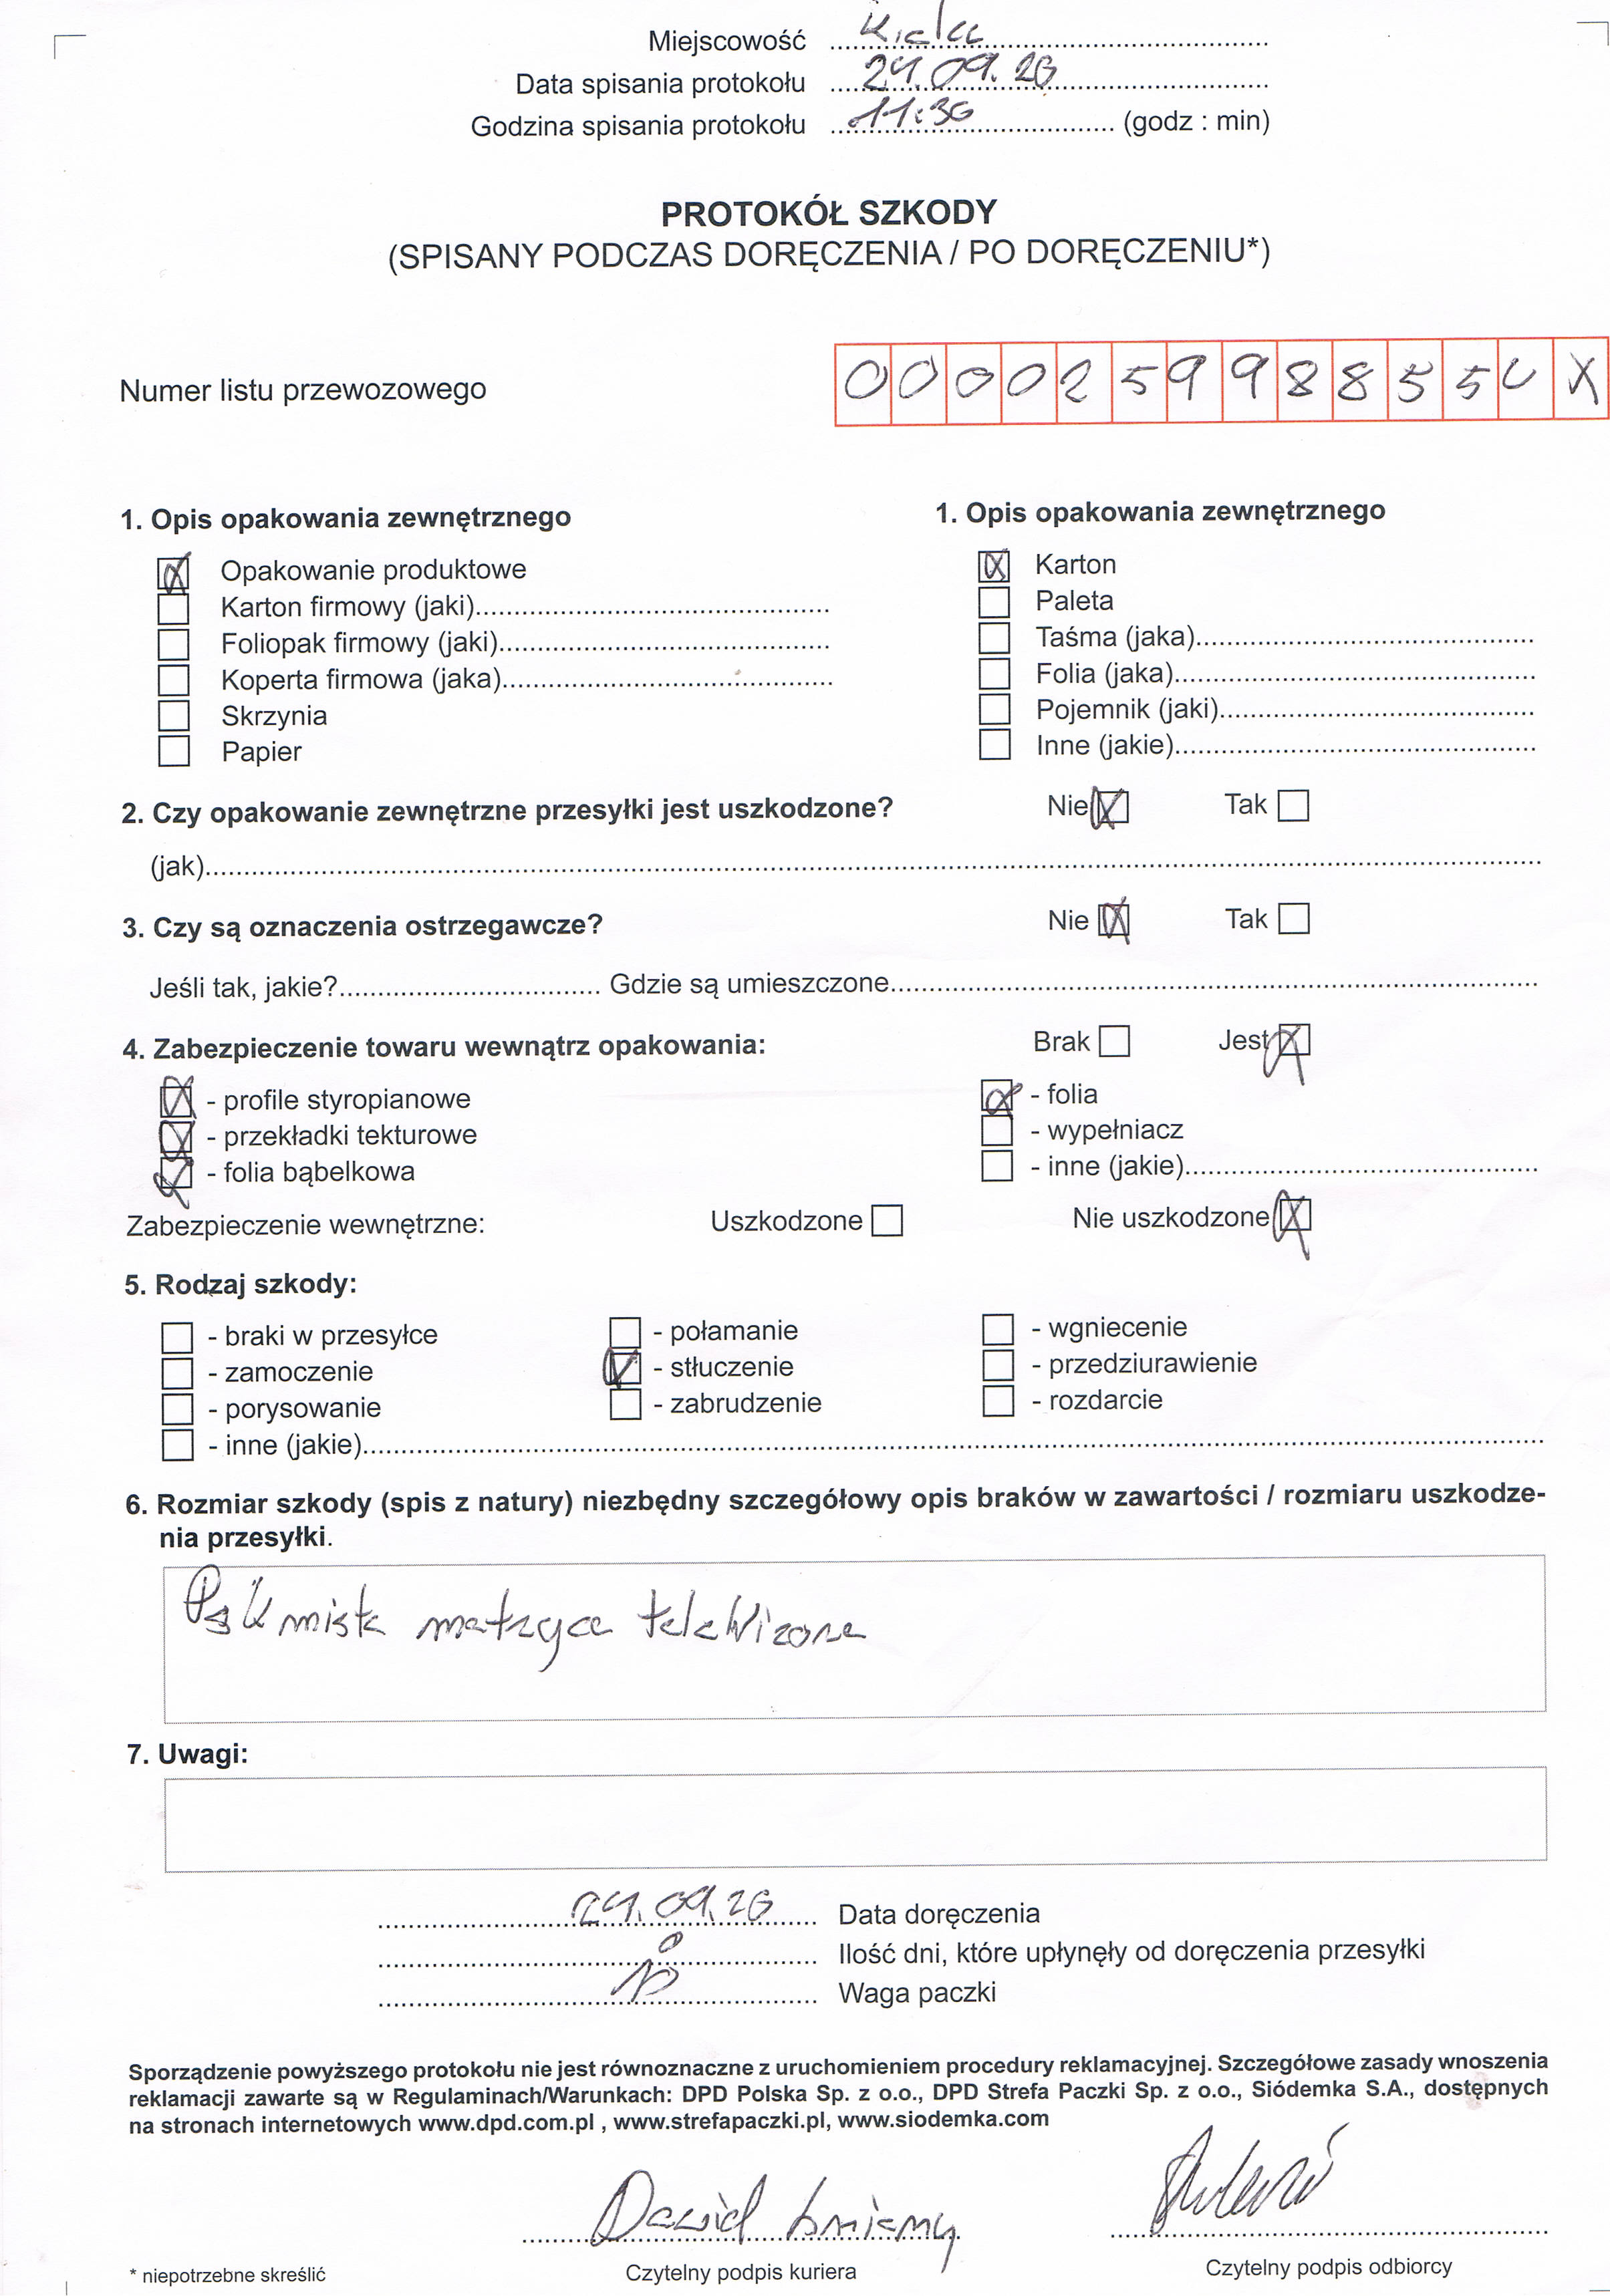 Miejscowość Kielce
Data spisania protokołu 24.09.20
Godzina spisania protokołu 11:30 (godz : min)
PROTOKÓŁ SZKODY
(SPISANY PODCZAS DORĘCZENIA / PO DORĘCZENIU*)
Numer listu przewozowego 0000259988554X
1. Opis opakowania zewnętrznego
Opakowanie produktowe
Karton firmowy (jaki)
Foliopak firmowy (jaki)
Koperta firmowa (jaka)
Skrzynia
Papier
1. Opis opakowania zewnętrznego
Karton
Paleta
Taśma (jaka)
Folia (jaka)
Pojemnik (jaki)
Inne (jakie)
2. Czy opakowanie zewnętrzne przesyłki jest uszkodzone? Nie Tak
(jak)
3. Czy są oznaczenia ostrzegawcze? Nie Tak
Jeśli tak, jakie? Gdzie są umieszczone
4. Zabezpieczenie towaru wewnątrz opakowania: Brak Jest
- profile styropianowe - folia
- przekładki tekturowe - wypełniacz
- folia bąbelkowa - inne (jakie)
Zabezpieczenie wewnętrzne: Uszkodzone Nie uszkodzone
5. Rodzaj szkody:
- braki w przesyłce - połamanie - wgniecenie
- zamoczenie - stłuczenie - przedziurawienie
- porysowanie - zabrudzenie - rozdarcie
- inne (jakie)
6. Rozmiar szkody (spis z natury) niezbędny szczegółowy opis braków w zawartości / rozmiaru uszkodze-
nia przesyłki.
matryca telewizora
7. Uwagi:
24.09.20 Data doręczenia
0 Ilość dni, które upłynęły od doręczenia przesyłki
Waga paczki
Sporządzenie powyższego protokołu nie jest równoznaczne z uruchomieniem procedury reklamacyjnej. Szczegółowe zasady wnoszenia
reklamacji zawarte są w Regulaminach/Warunkach: DPD Polska Sp. z o.o., DPD Strefa Paczki Sp. z o.o., Siódemka S.A., dostępnych
na stronach internetowych www.dpd.com.pl , www.strefapaczki.pl, www.siodemka.com
Dawid
* niepotrzebne skreślić Czytelny podpis kuriera Czytelny podpis odbiorcy